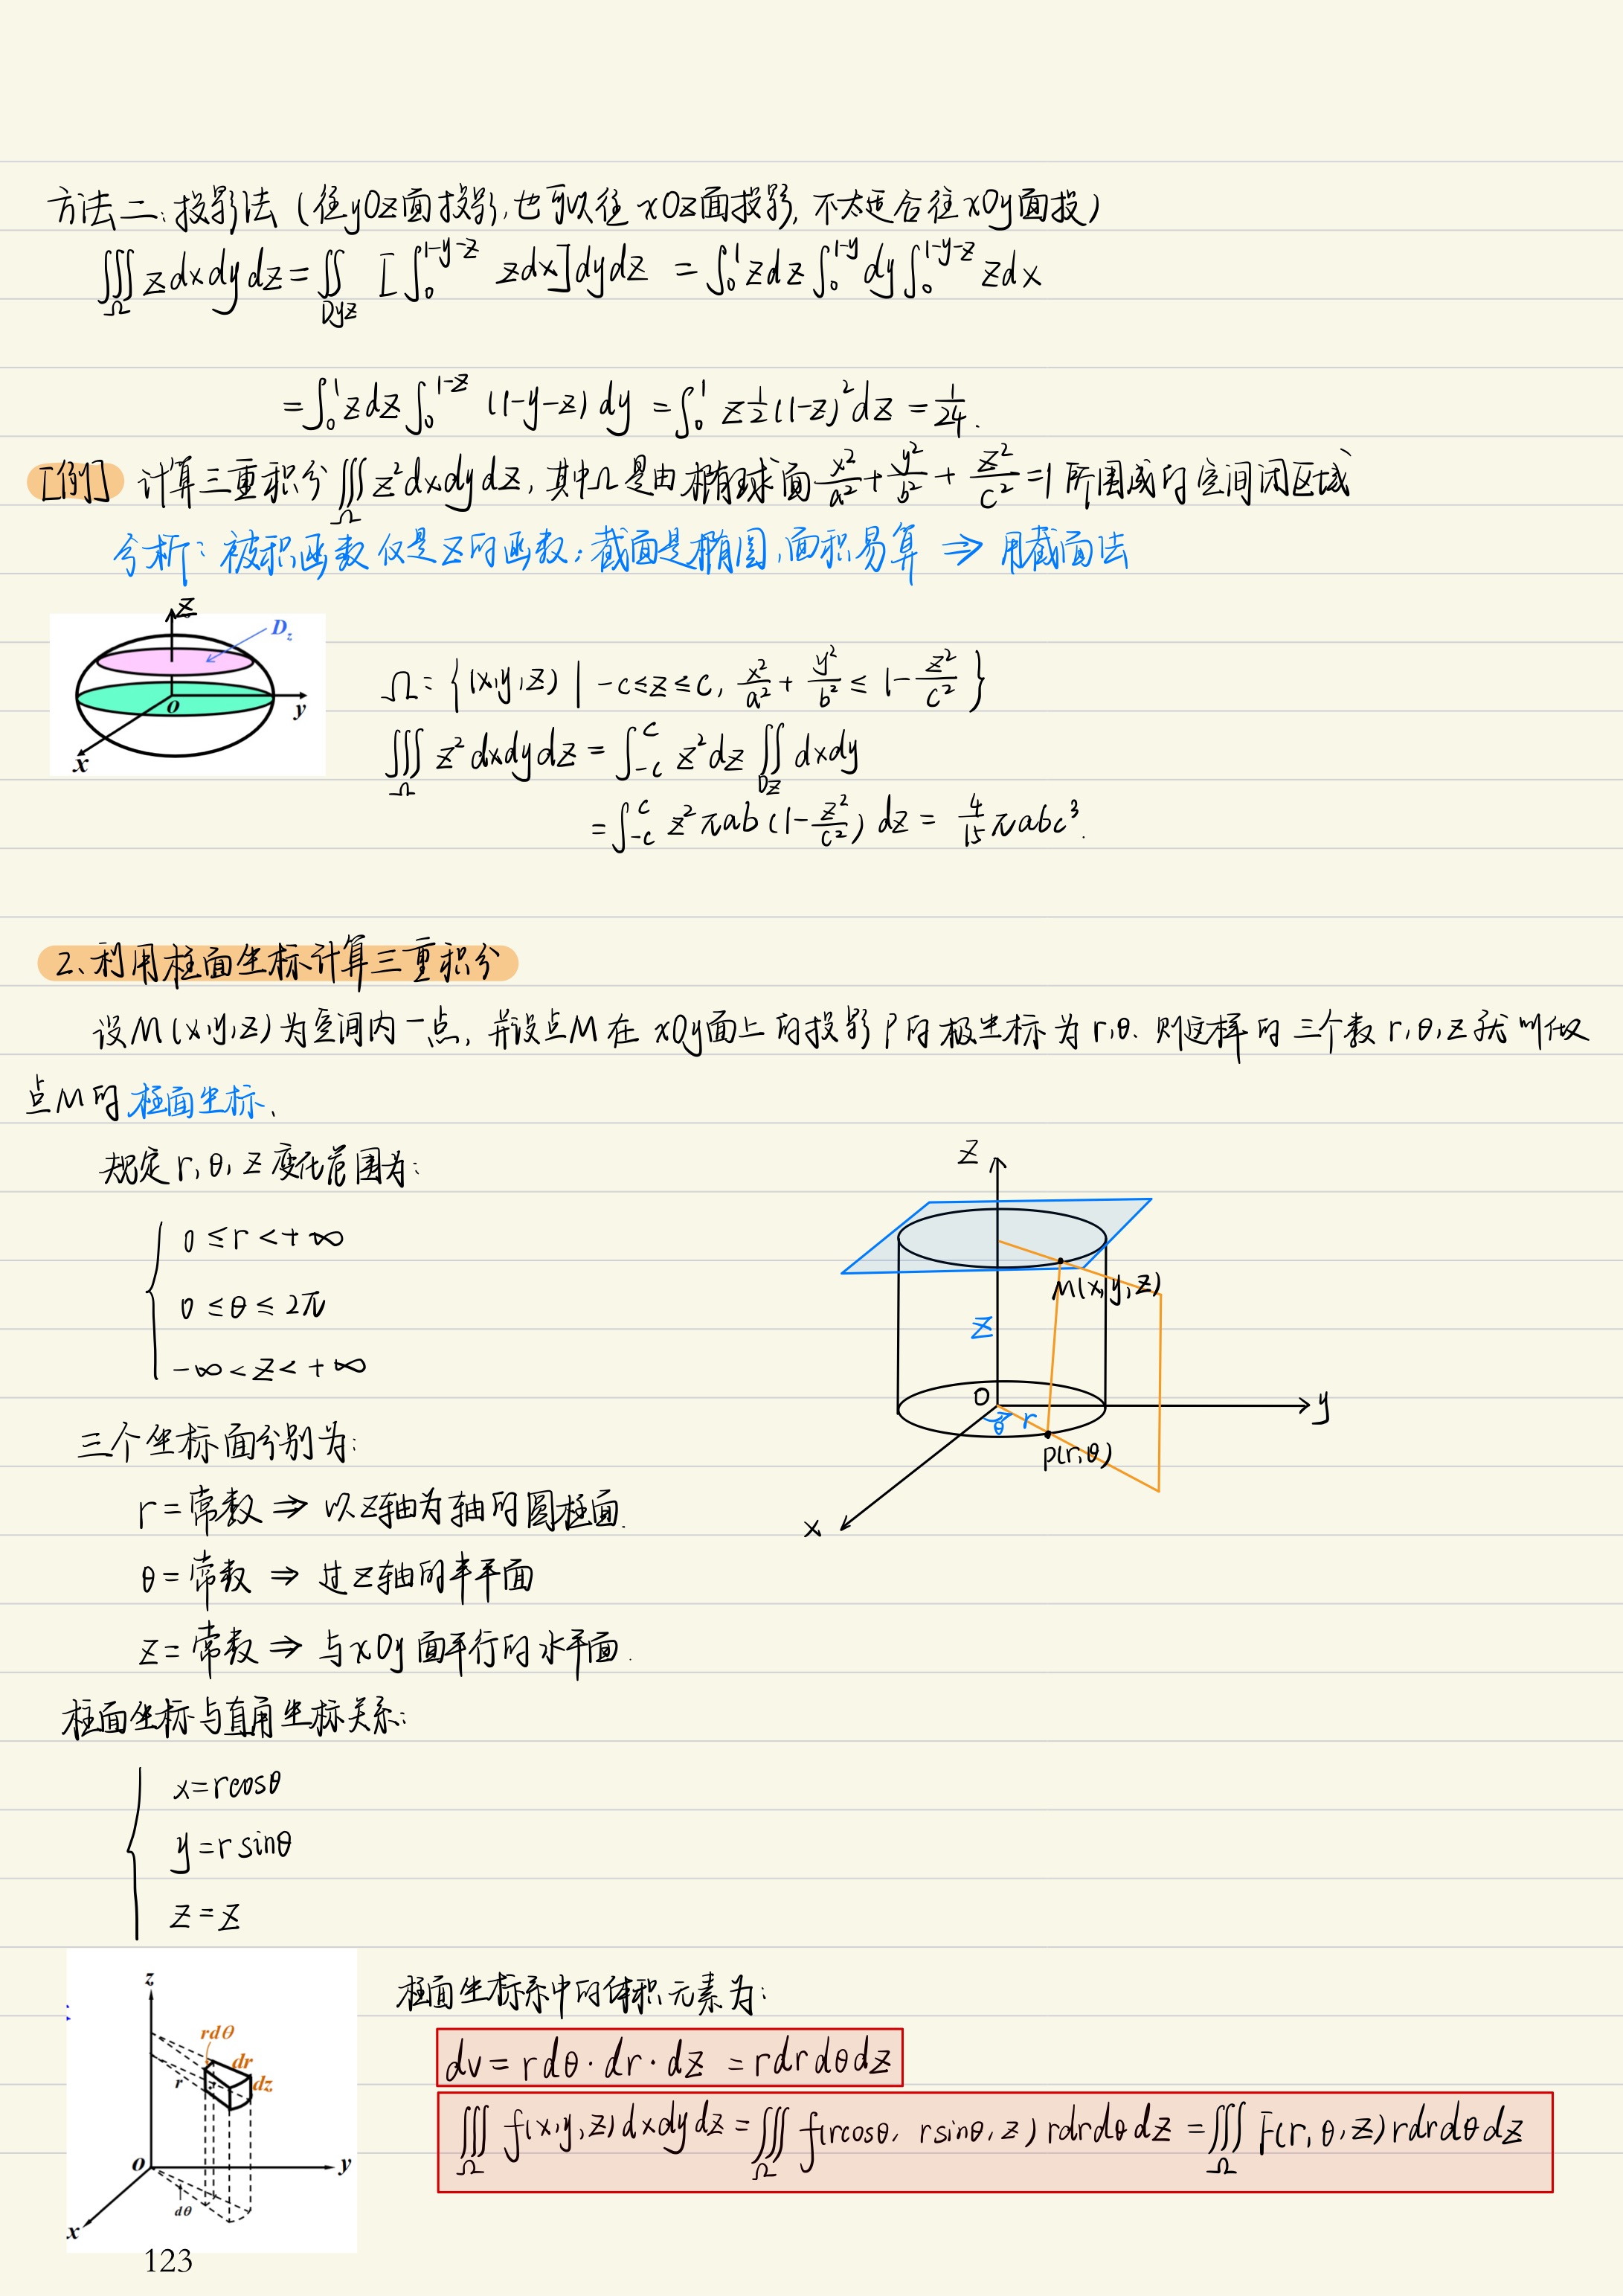 方法二:投影法(往yOz面投影,也可以往xOz面投影,不太适合往xOy面投)
∭_Ω zdxdydz = ∬_Dyz [∫_0^{1-y-z} zdx]dydz = ∫_0^1 zdz ∫_0^{1-y} dy ∫_0^{1-y-z} zdx
= ∫_0^1 zdz ∫_0^{1-z} (1-y-z) dy = ∫_0^1 z 1/2 (1-z)^2 dz = 1/24.
[例] 计算三重积分 ∭_Ω z²dxdydz, 其中Ω是由椭球面 x²/a² + y²/b² + z²/c² = 1 所围成的空间闭区域
分析: 被积函数仅是z的函数;截面是椭圆,面积易算 ⇒ 用截面法
z
D_z
o
y
x
Ω = {(x,y,z) | -c≤z≤c, x²/a² + y²/b² ≤ 1 - z²/c²}
∭_Ω z²dxdydz = ∫_{-c}^{c} z²dz ∬_Dz dxdy
= ∫_{-c}^{c} z² πab (1 - z²/c²) dz = 4/15 πabc³.
2、利用柱面坐标计算三重积分
设M(x,y,z)为空间内一点, 并设点M在xOy面上的投影P的极坐标为r,θ. 则这样的三个数r,θ,z就叫做
点M的柱面坐标、
规定r,θ,z变化范围为:
0 ≤ r < +∞
0 ≤ θ ≤ 2π
-∞ < z < +∞
z
M(x,y,z)
z
O
θ
r
y
P(r,θ)
x
三个坐标面分别为:
r = 常数 ⇒ 以z轴为轴的圆柱面.
θ = 常数 ⇒ 过z轴的半平面
z = 常数 ⇒ 与xOy面平行的水平面.
柱面坐标与直角坐标关系:
x = rcosθ
y = r sinθ
z = z
z
rdθ
dr
r
dz
o
y
dθ
x
柱面坐标系中的体积元素为:
dv = rdθ·dr·dz = rdrdθdz
∭_Ω f(x,y,z)dxdydz = ∭_Ω f(rcosθ, rsinθ, z) rdrdθdz = ∭_Ω F(r,θ,z)rdrdθdz
123